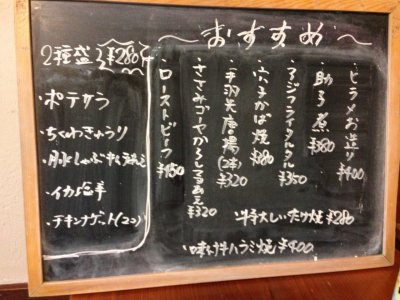 〜おすすめ〜
ヒラメお造り ¥400
助子煮 ¥380
アジフライタルタル ¥350
穴子かば焼 ¥380
手羽先唐揚(2本) ¥320
ささみゴーヤからしマヨあえ ¥320
ローストビーフ ¥450
牛すじ大根
2種盛 ¥280
・ポテサラ
・ちくわきゅうり
・イカ塩辛
・チキンナゲット(2コ)
しいたけ焼 ¥280
・味付牛ハラミ焼 ¥400